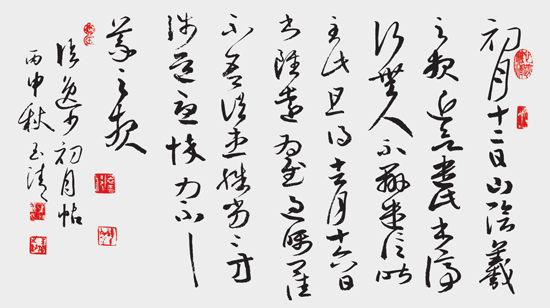 初月十二日山陰羲
之報近欲遣此書停
行無人不辦遣信昨
至此且得去月十六日
書雖遠為慰過囑
不吾諸患殊劣方
涉道憂悴力不
羲之報
臨逸少初月帖
丙申秋玉清